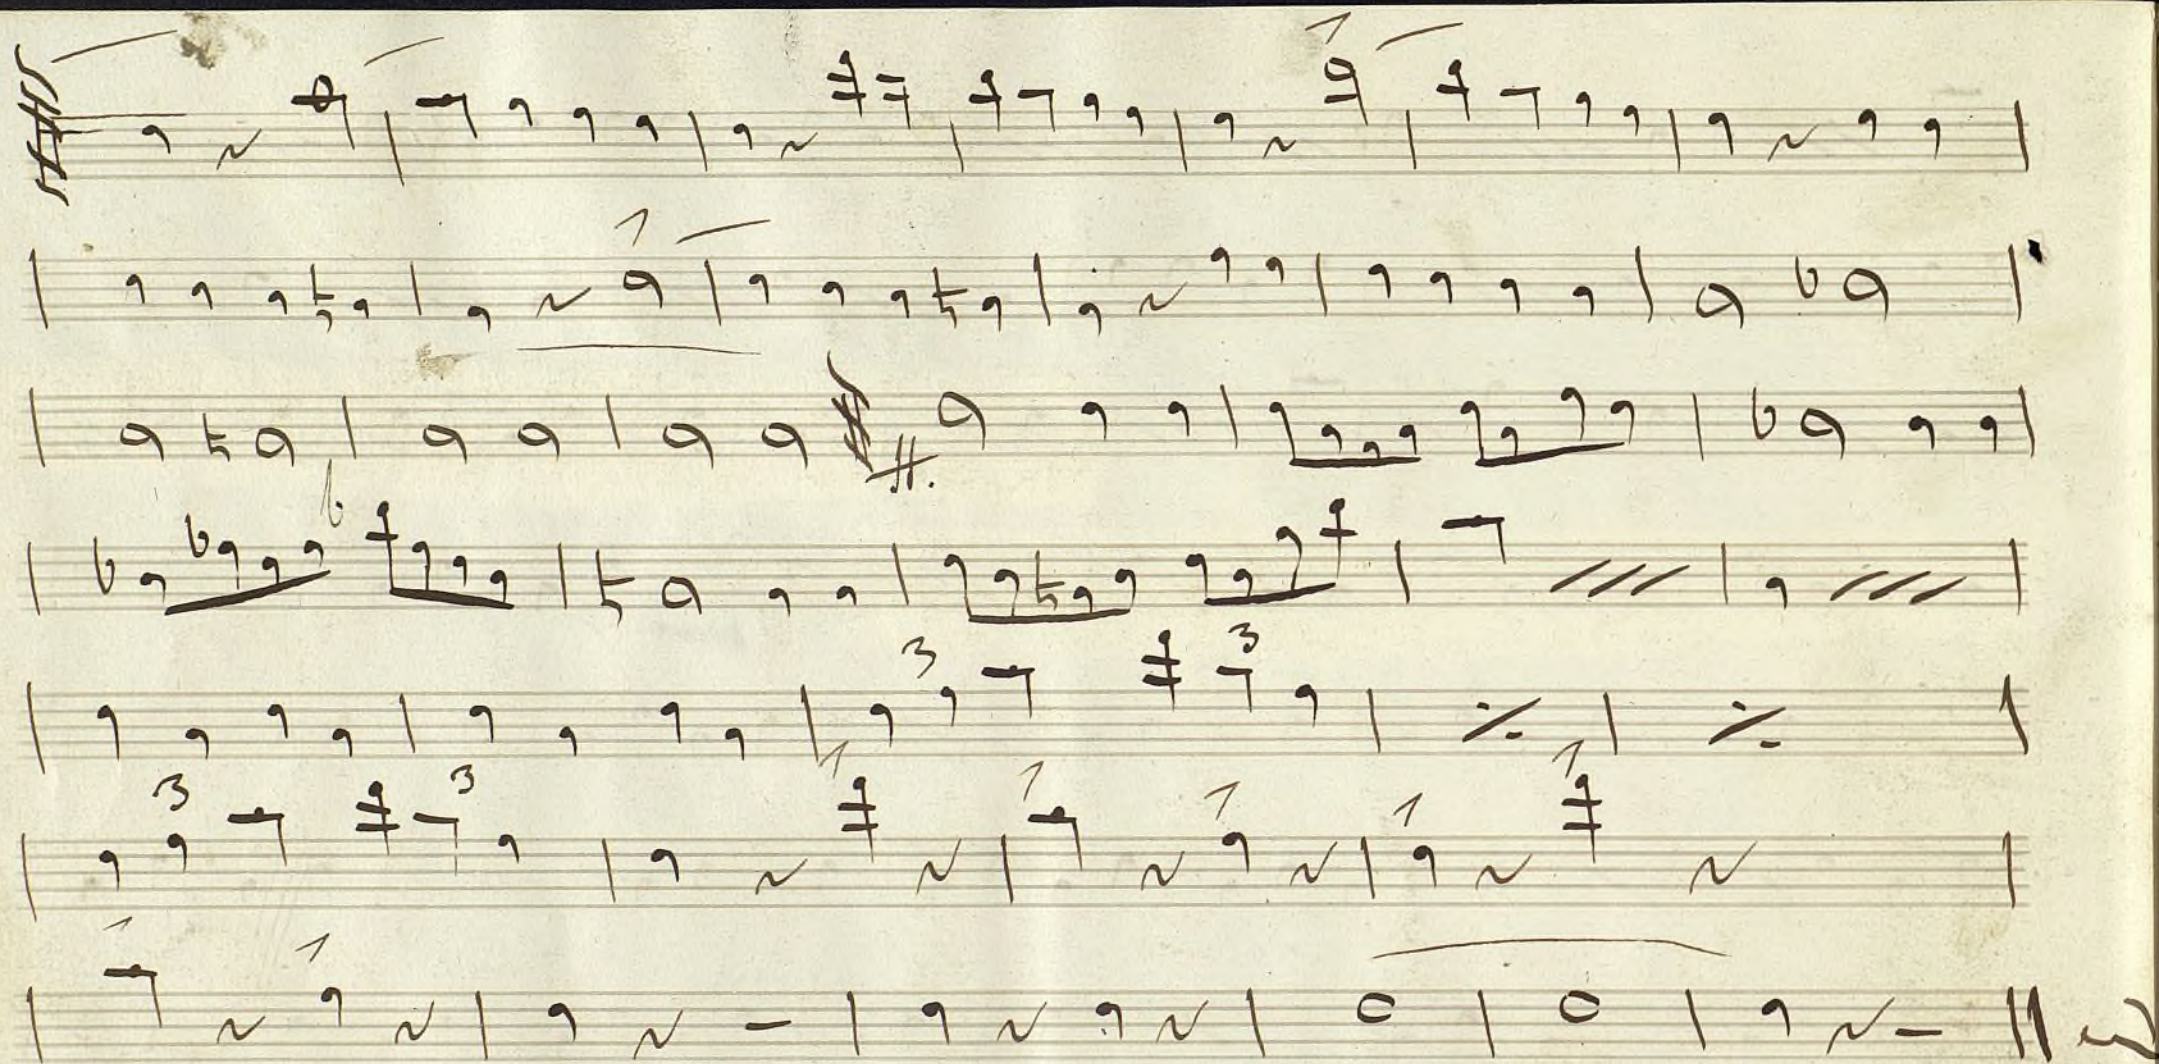 3
3
3
3